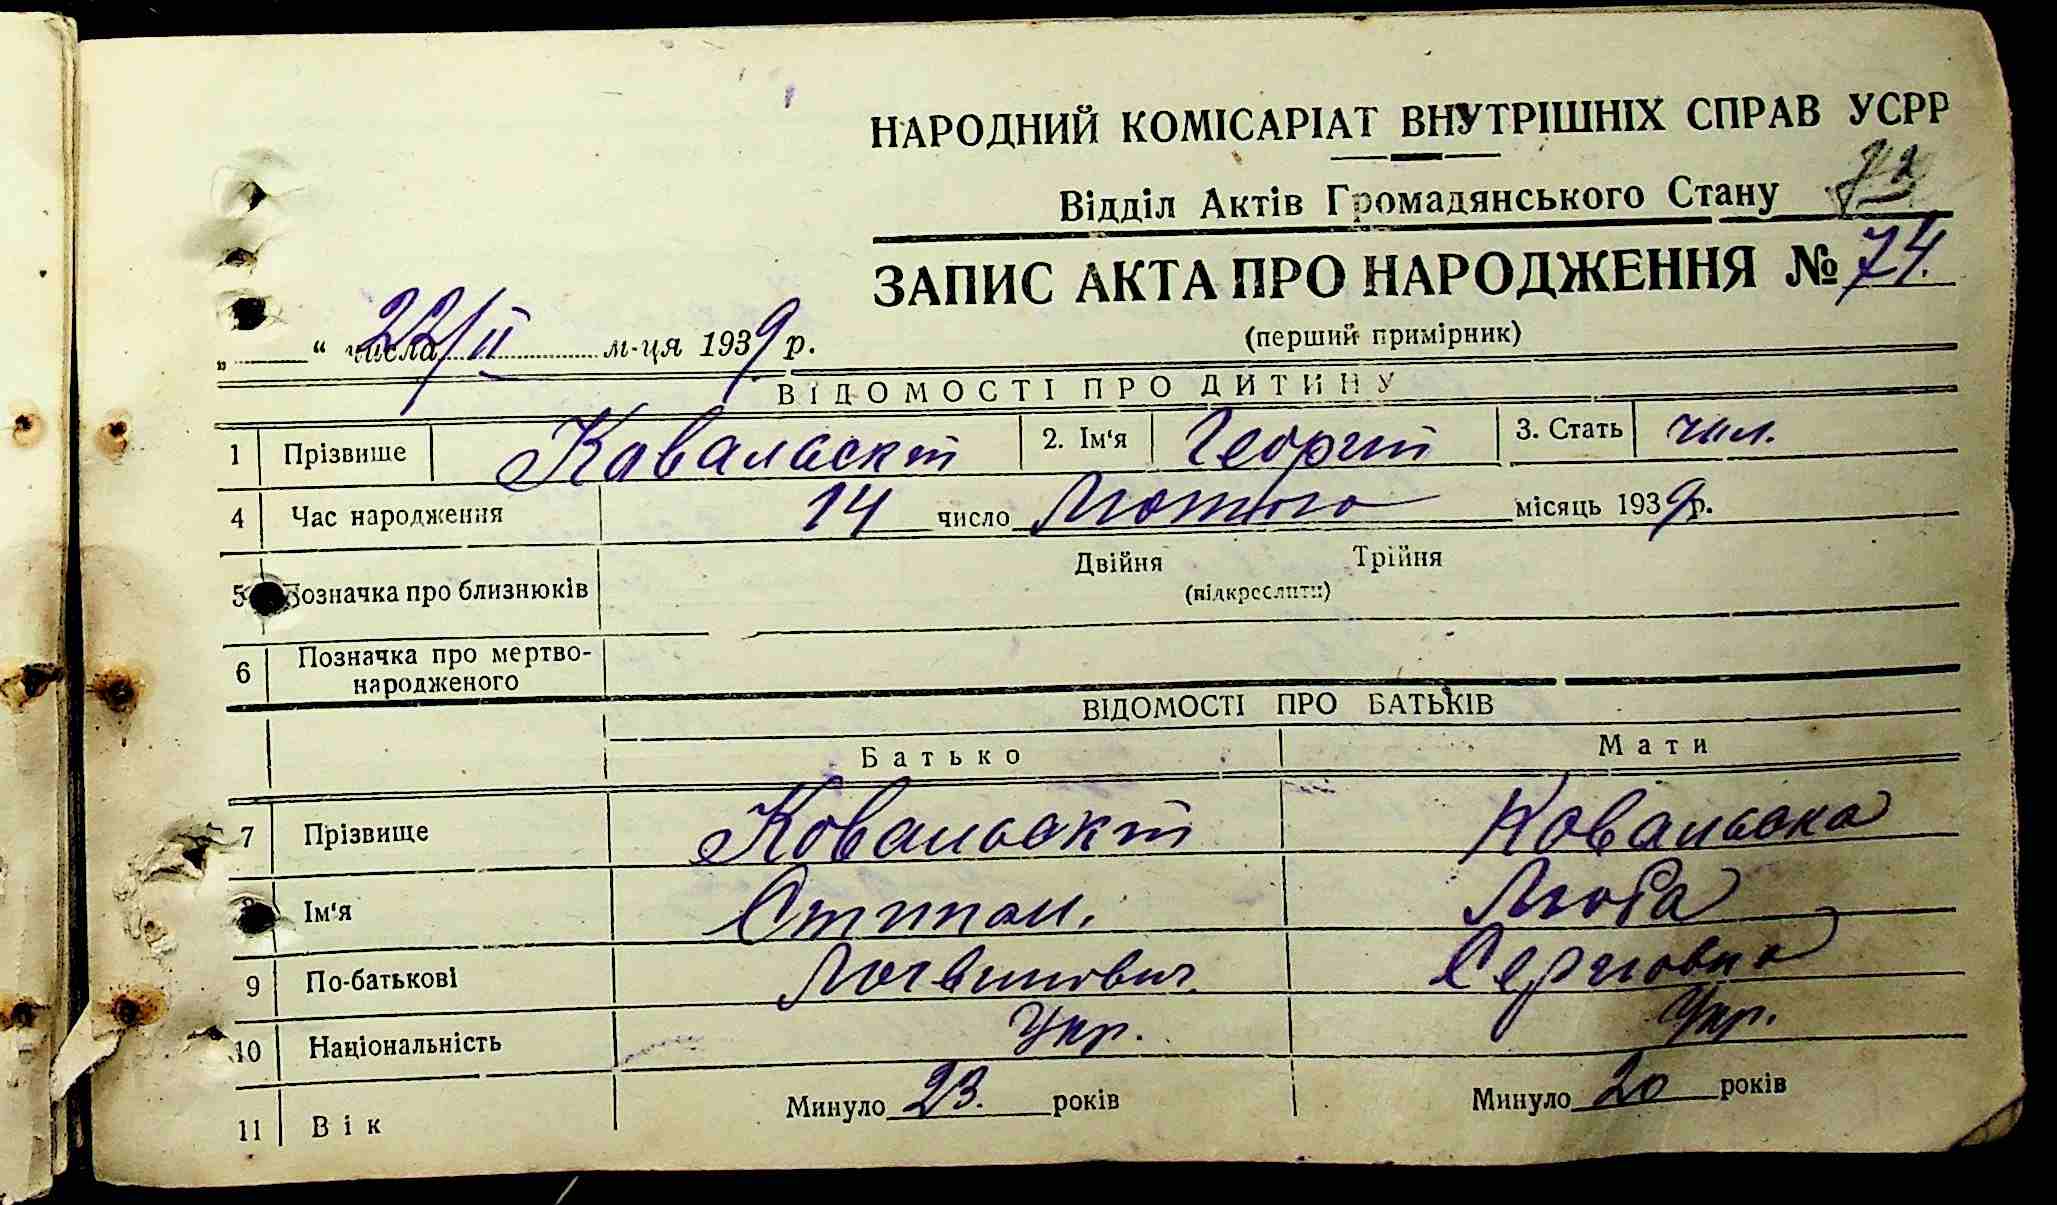 НАРОДНИЙ КОМІСАРІАТ ВНУТРІШНІХ СПРАВ УСРР
Відділ Актів Громадянського Стану
ЗАПИС АКТА ПРО НАРОДЖЕННЯ № 74.
(перший примірник)
„ “ числа 22/II м-ця 1939 р.
ВІДОМОСТІ ПРО ДИТИНУ
1 Прізвише Ковальскій 2. Ім'я Георгій 3. Стать чол.
4 Час народження 14 число Лютого місяць 1939 р.
5 Позначка про близнюків Двійня Трійня
(підкреслити)
6 Позначка про мертво-
народженого
ВІДОМОСТІ ПРО БАТЬКІВ
Батько Мати
7 Прізвище Ковальскій Ковальска
8 Ім'я Степан. Люба
9 По-батькові Логвинович Сергіовна
10 Національність Укр. Укр.
11 Вік Минуло 23. років Минуло 20 років